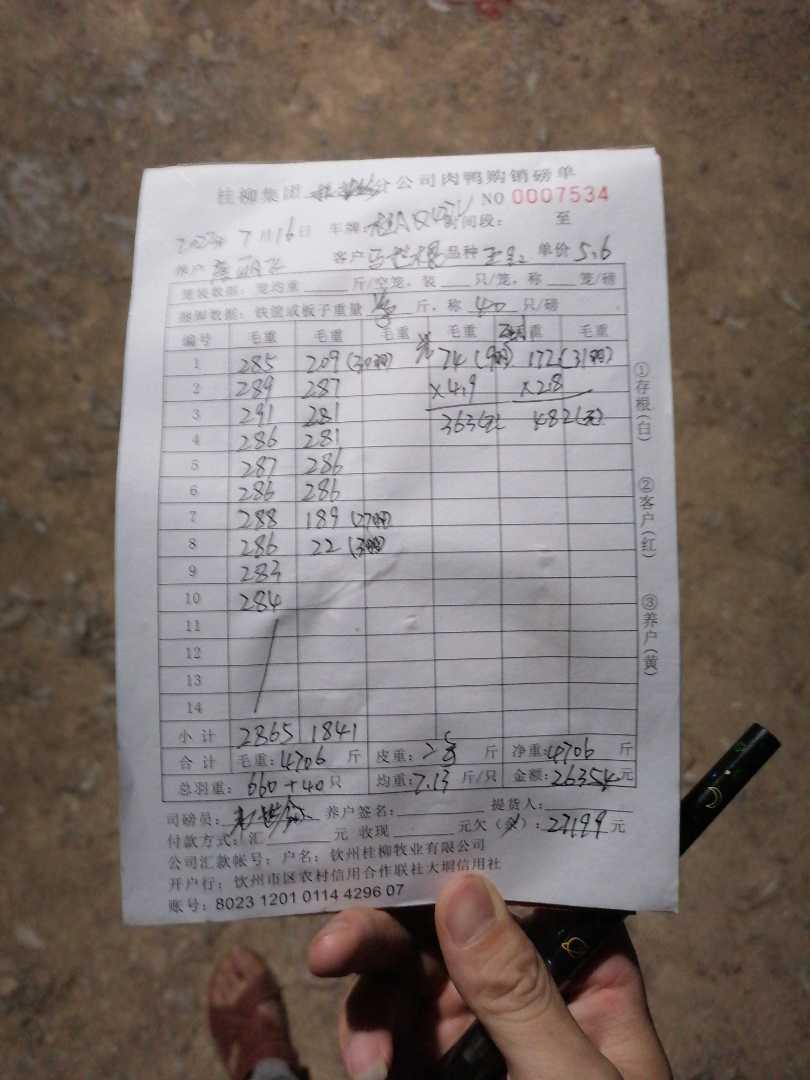 桂柳集团 分公司肉鸭购销磅单
NO 0007534
7月16日 车牌: 时间段: 至
养户 客户 品种 单价 5.6
笼装数据: 笼均重 斤/空笼, 装 只/笼, 称 笼/磅
捆脚数据: 铁篮或板子重量 斤, 称 40 只/磅
编号 毛重 毛重 毛重 毛重 重 毛重
1 285 209 (30羽) 74 (9羽) 172 (31羽)
2 289 287 ×4.9 ×2.8
3 291 281 363(元) 482(元)
4 286 281
5 287 286
6 286 286
7 288 189 (27羽)
8 286 22 (3羽)
9 283
10 284
11
12
13
14
小计 2865 1841
合计 毛重: 4706 斤 皮重: 斤 净重: 4706 斤
总羽重: 660+40 只 均重: 7.13 斤/只 金额: 26354 元
司磅员: 养户签名: 提货人:
付款方式: 汇 元 收现 元欠( ): 27199 元
公司汇款帐号: 户名: 钦州桂柳牧业有限公司
开户行: 钦州市区农村信用合作联社大垌信用社
账号: 8023 1201 0114 4296 07
①存根(白)
②客户(红)
③养户(黄)